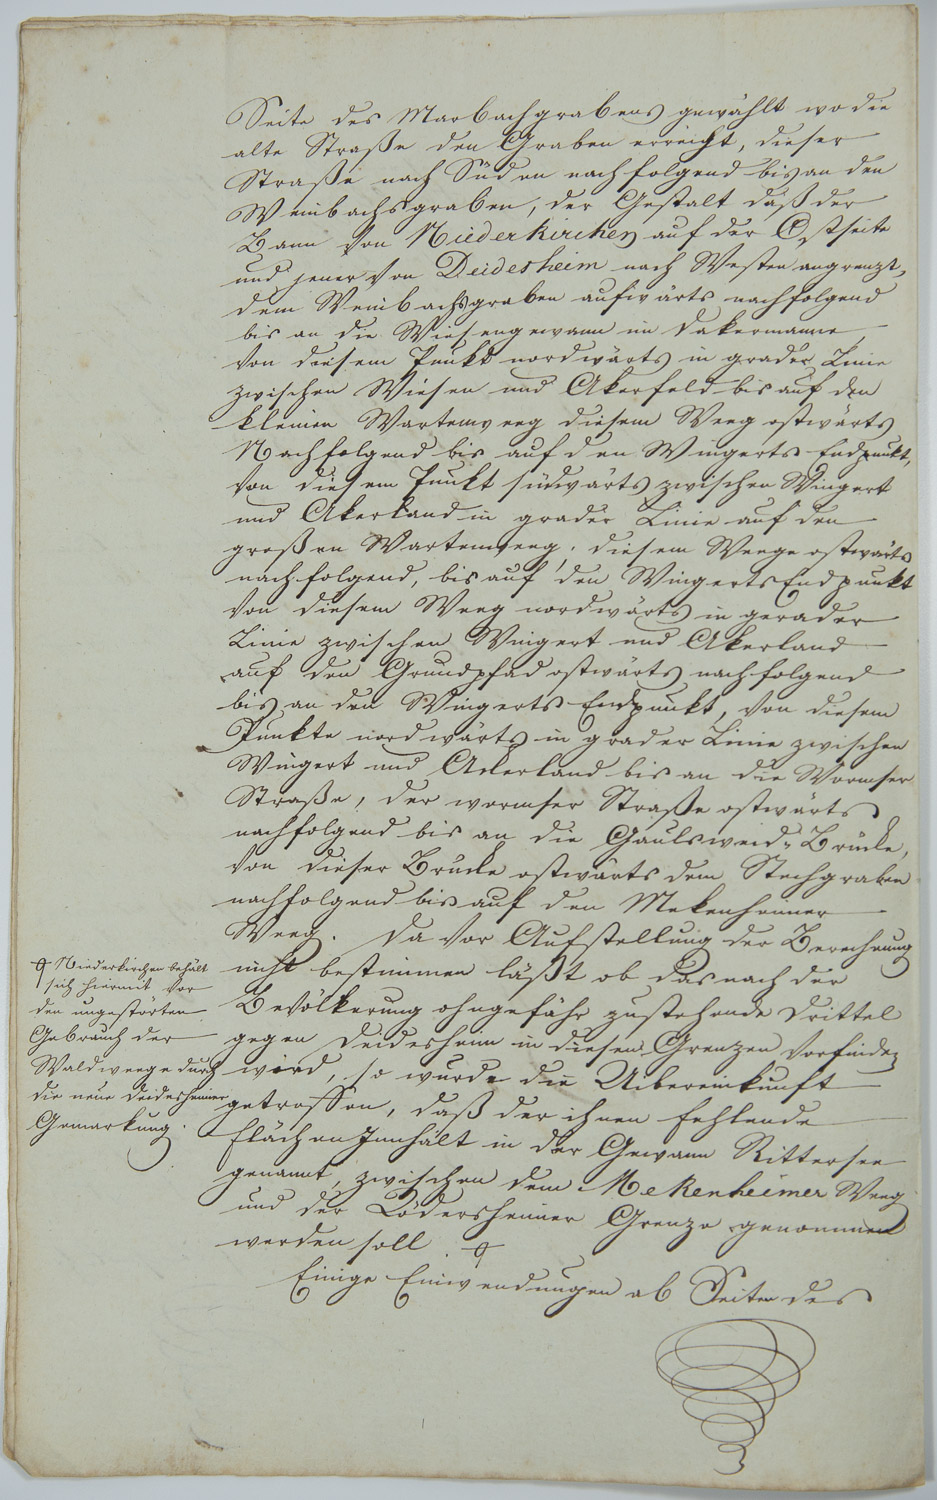 Seite des Marbachgrabens gewählt wo die
alte Straße den Graben erreicht, dieser
Straße nach Süden nachfolgend bis an den
Weinbachsgraben, der Gestalt daß der
Bann von Niederkirchen auf der Ostseite
und jener von Deidesheim nach Westen angrenzt,
dem Weinbachsgraben aufwärts nachfolgend
bis an die Wiesengewann im
von diesem Punkt nordwärts in grader Linie
zwischen Wiesen und Akerfeld bis auf den
kleinen Wartenweeg diesem Weeg ostwärts
Nachfolgend bis auf den Wingerts Endpunkt,
von diesem Punkt südwärts zwischen Wingert
und Akerland in grader Linie auf den
großen Wartenweeg, diesem Weege ostwärts
nachfolgend, bis auf den Wingerts Endpunkt
von diesem Weeg nordwärts in gerader
Linie zwischen Wingert und Akerland
auf den Grundpfad ostwärts nachfolgend
bis an den Wingerts Endpunkt, von diesem
Punkte nordwärts in grader Linie zwischen
Wingert und Ackerland bis an die Wormser
Straße, der wormser Straße ostwärts
nachfolgend bis an die Gaulsweid-Brücke,
von dieser Brucke ostwärts dem Stechgraben
nachfolgend bis auf den Mekenheimer
Weeg. Da vor Aufstellung der Berechnung
nicht bestimmen läßt ob das nach der
Bevölkerung ohngefähr zustehende Drittel
gegen Deidesheim in diesen Grenzen vorfinden
wird, so wurde die Uibereinkunft
getroffen, daß der ihnen fehlende
Flächen Innhalt in der Gewann Rittersee
genannt, zwischen dem Mekenheimer Weeg
und der Rödersheimer Grenze genommen
werden soll.
Einige Einwendungen ab Seiten des
Niederkirchen behält
sich hiermit vor
den ungestörten
Gebrauch der
Waldweege durch
die neue Deidesheimer
Gemarkung.